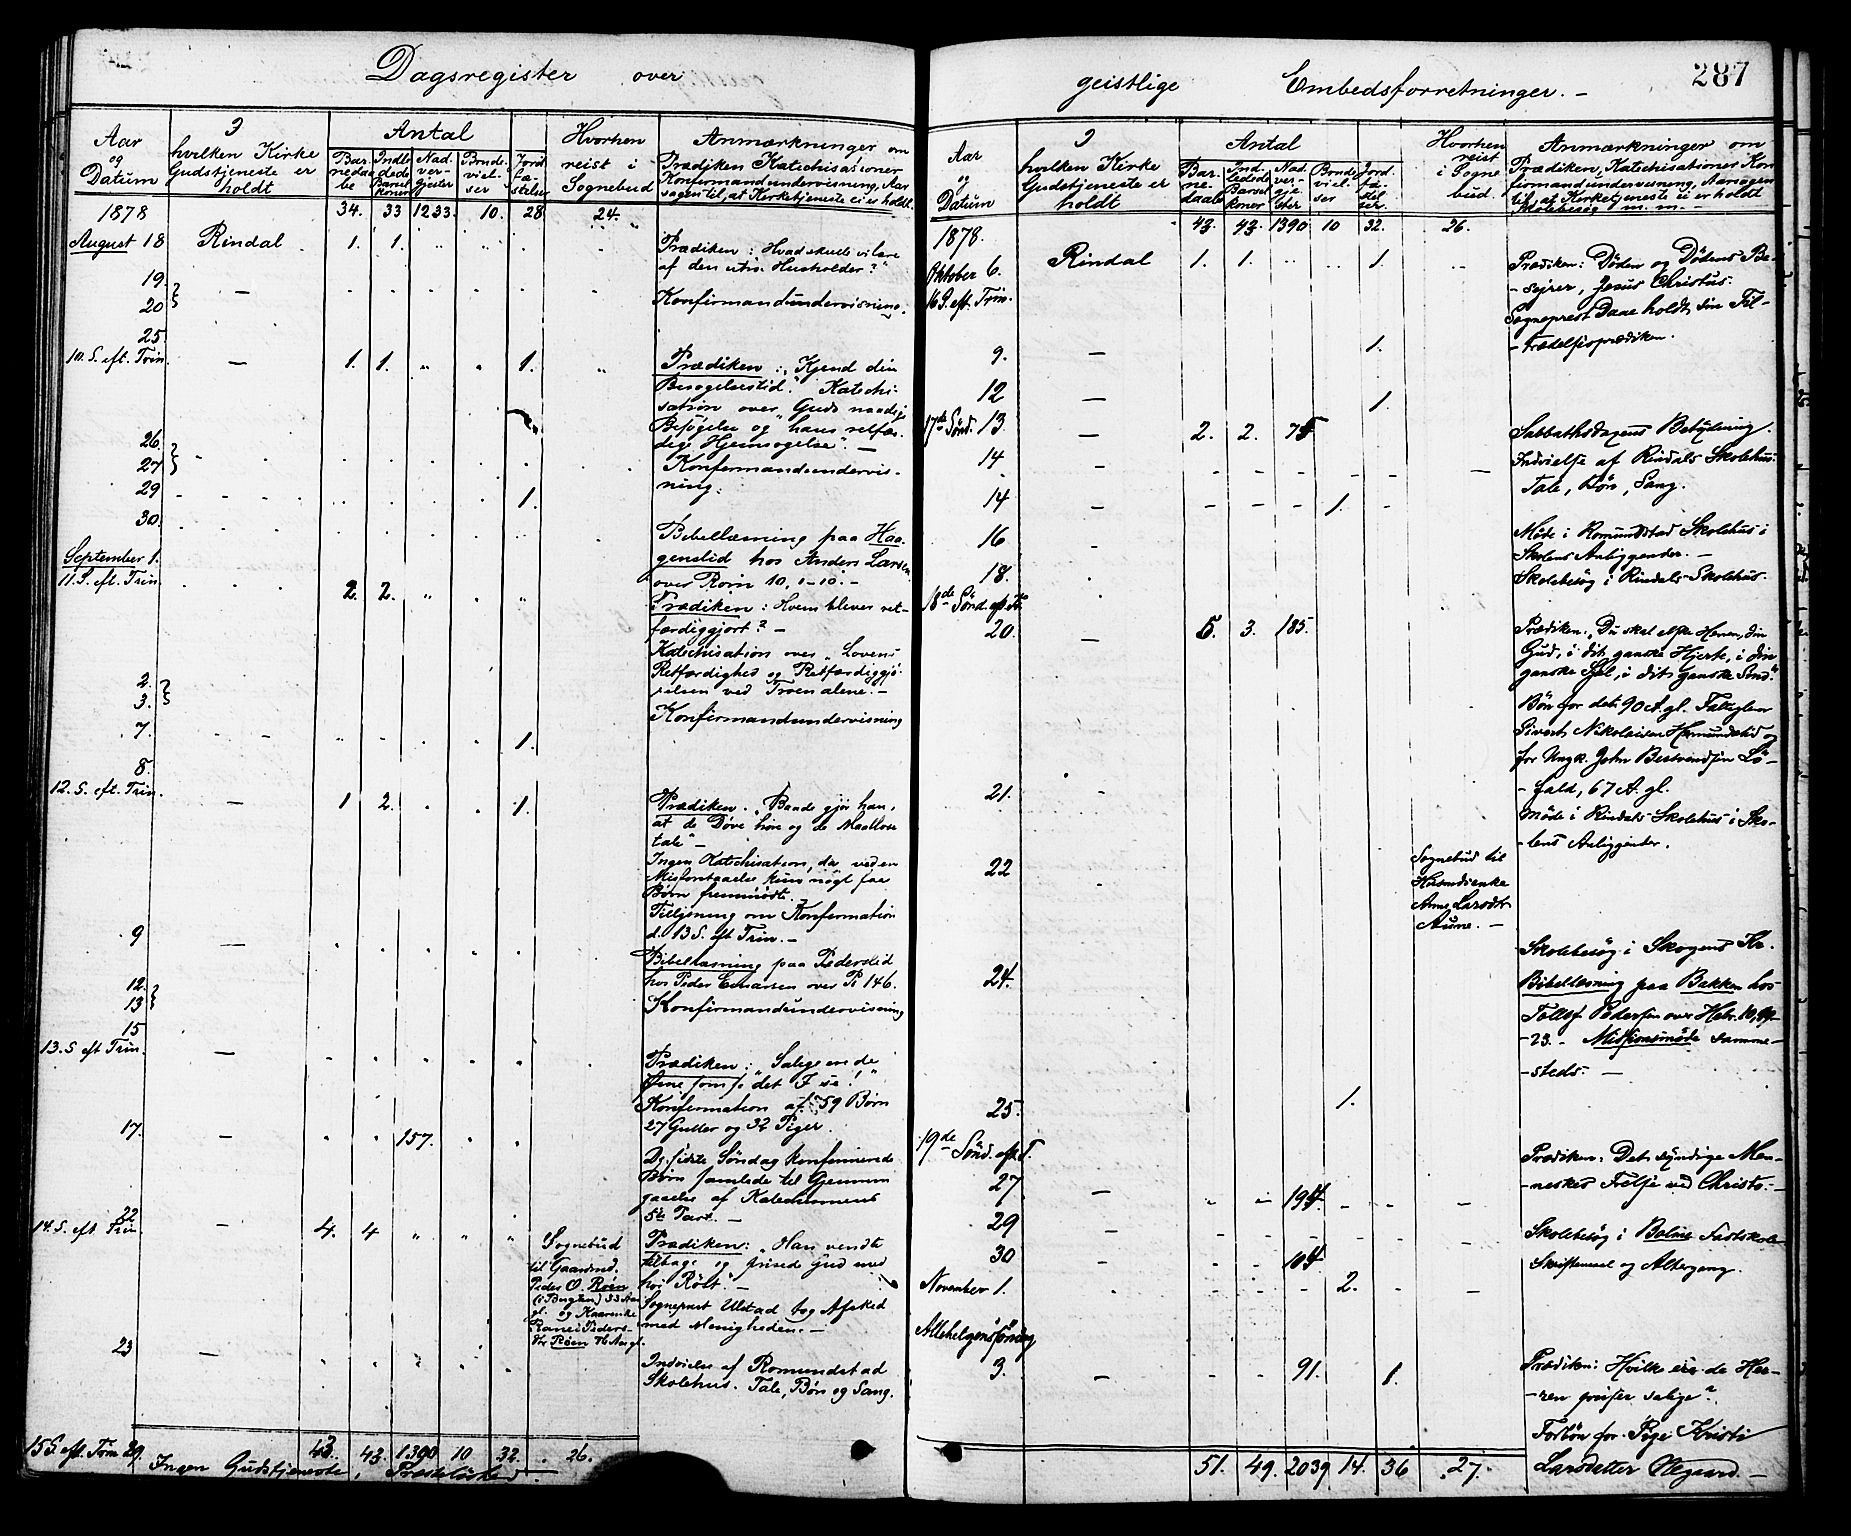 Dagsregister over
Aar og Datum
I hvilken Kirke Gudstjeneste er holdt
Antal
Barnedaabe
Indledede Barselkoner
Nadvergjester
Brudevielser
Jordfæstelser
Hvorhen reist i Sognebud
Anmærkninger om Prædiken Katechisationer Konfirmandundervisning, Aarsagen til, at Kirketjeneste ei er holdt.
1878 34. 33 1233. 10. 28 24.
August 18 Rindal 1. 1.
Prædiken: Hvad skulle vi lære
af den utro Husholder?"
19.
20
Konfirmandundervisning.
25
10. S. eft. Trin. 1. 1. 1.
Prædiken: „Kjend din
Besøgelsestid." Katechi-
sation over „Guds naadige
Besøgelse og „hans retfær-
dige Hjemsøgelse". —
26.
27
Konfirmandundervis-
ning.
29 1.
30.
Bibellæsning paa Haa-
genslid hos Anders Larsen
over Rom 10, 1-10. -
September 1.
11. S. eft. Trin. 2. 2.
Prædiken: Hvem blever ret-
færdiggjort? -
Katechisation over „Lovens
Retfærdighed og Retfærdiggjø-
relsen ved Troen alene. -
2.
3.
Konfirmandundervisning
7. 1.
8.
12. S. eft. Trin. 1 2. 1.
Prædiken. „Baade gjør han,
at de Døve høre og de Maalløse
tale" -
Ingen Katechisation, da ved en
Misforstaaelse kun nogle faa
Børn fremmødte.
Tilljsning om Konfirmation
d. 13 S. eft Trin. -
9
Bibellæsning paa Pederslid
hos Peder Einarsen over Ps 146.
12.
13
Konfirmandundervisning
15
13. S eft Trin.
Prædiken: „Salige ere de
Øine som se det I se!"
Konfirmation af 59 Børn
27 Gutter og 32 Piger.
17. 157.
De sidste Søndag konfirmerede
Børn samlede til Gjennem
gaaelse af Katechismens
5te Part. -
22
14. S. eft Trin. 4. 4
Sognebud
til Gaardmd.
Peder O. Røen
Prædiken: „Han vendte
tilbage og prisede Gud med
høi Røst".
Sogneprest Ulstad tog Afsked
med Menigheden. -
23
Indvielse af Romundstad
Skolehus. Tale, Bøn og Sang.
43. 43. 1390 10 32. 26.
15 S. eft. Trin 29. Ingen Gudstjeneste,
geistlige Embedsforretninger. -
287
Aar og Datum
I hvilken Kirke Gudstjeneste er holdt
Antal
Barnedaab
Indledede Barselkoner
Nadvergjester
Brudevielser
Jordfæstelser.
Hvorhen reist i Sognebud.
Anmærkninger om Prædiken, Katechisationer Konfirmandundervisning, Aarsagen til, at Kirketjeneste ei er holdt Skolebesøg m. m.
1878. 43. 43. 1390 10 32. 26.
Oktober 6. Rindal 1. 1. 1.
16 S. eft. Trin.
Prædiken: Døden og Dødens Be-
-sejrer, Jesus Christus.
Sogneprest Daae holdt sin Til-
-trædelsesprædiken.
9. 1.
12 1.
17de Sønd. 13 2. 2. 75
Sabbathsdagens Betydning.
14
Indvielse af Rindals Skolehus.
Tale, Bøn, Sang.
14 1.
16
Møde i Romundstad Skolehus i
Skolens Anliggender. -
18.
Skolebesøg i Rindals-Skolehus.
18de Sønd. ef. Tr.
20. 5. 3. 185.
Prædiken: „Du skal elske Herren, din
Gud, i dit ganske Hjerte, i din
ganske Sjel, i dit ganske Sind."
Bøn for det 90 A. gl. Fattiglem
Sivert Nikolaisen Hermundslid og
for Ungk. John Bertrandsen Lø-
-fald, 67 A. gl.
21.
Møde i Rindals-Skolehus i Sko-
-lens Anliggender.
22
Sognebud til
Husmdsenke
Anne Larsdtr
Aune. -
Skolebesøg i Skogens Kr.
24.
Bibellæsning paa Bakken hos
Tollef Pedersen over Hebr. 10, 19-
-23. - Missionsmøde samme-
-steds. -
25. 1.
19de Sönd. ef. T.
27 194.
Prædiken: Det syndige Men-
-neskes Frelse ved Christo. -
29
Skolebesøg i Bolme Fastskole
30 104.
Skriftemaal og Altergang.
November 1. 2.
Allehelgenssöndag
3. 91. 1.
Prædiken: Hvilke ere de Her-
-ren priser salige?
Forbøn for Pige Kristi
Larsdatter Negaard. -
51. 49. 2039. 14. 36 27.